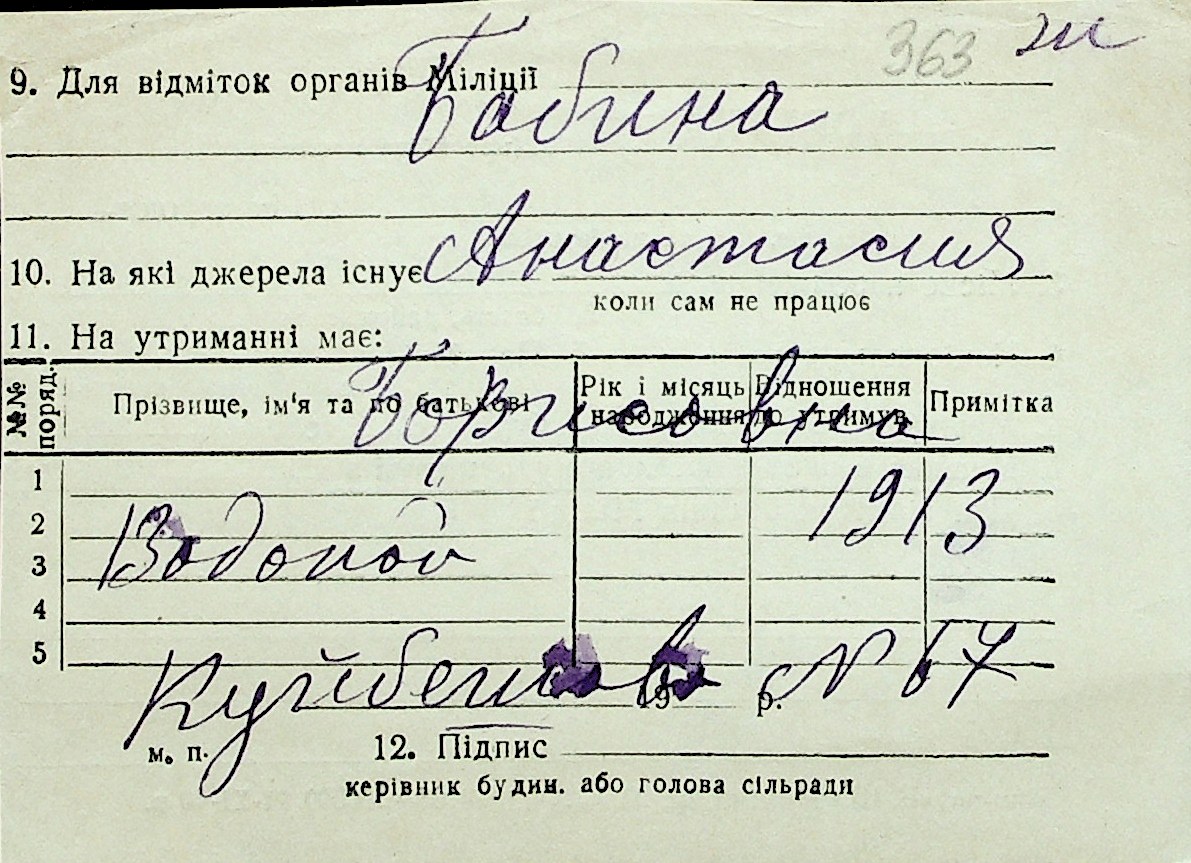 363 ж
9. Для відміток органів Міліції
Бабина
10. На які джерела існує Анастасия
коли сам не працює
11. На утриманні має:
№№ поряд. Прізвище, ім'я та по батькові Рік і місяць народження Відношення до утримув. Примітка
Борисовна
1
1913
2
Водопой
3
4
5
Куйбешова № 67
19 р.
м. п. 12. Підпис
керівник будин. або голова сільради